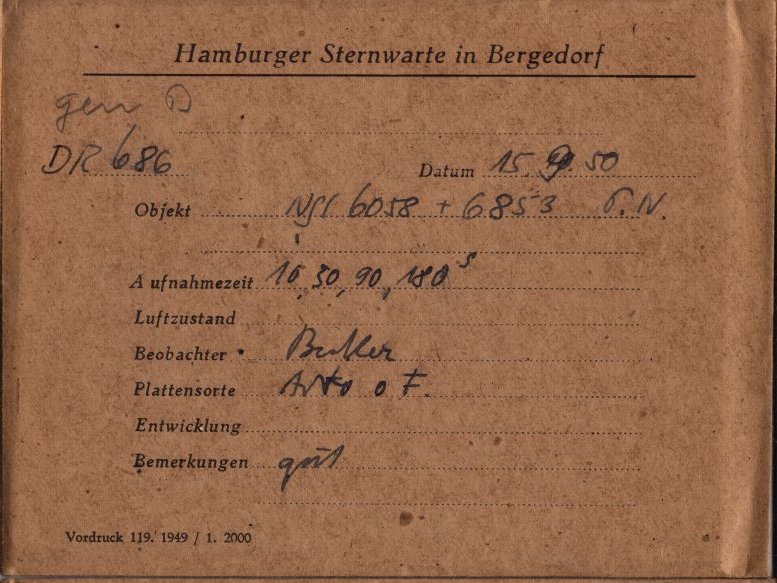 Hamburger Sternwarte in Bergedorf
gem D
DR 686 Datum 15. 9. 50
Objekt NGC 6058 + 6853 P. N.
Aufnahmezeit 10, 30, 90, 180 s
Luftzustand
Beobachter
Plattensorte o F.
Entwicklung
Bemerkungen gut
Vordruck 119. 1949 / 1. 2000